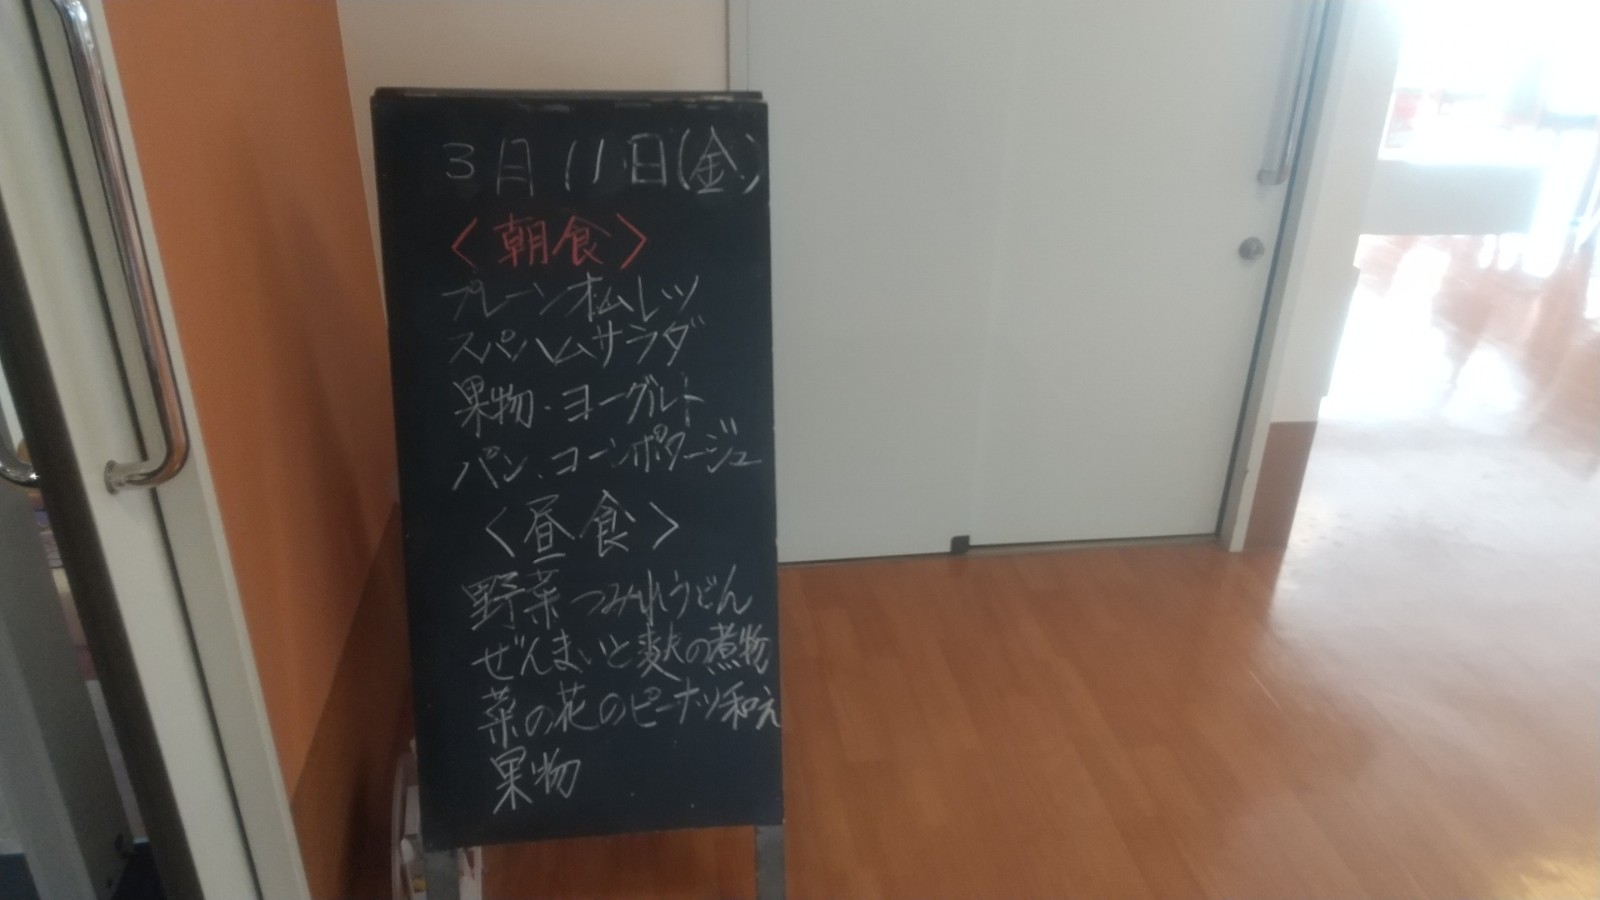 3月11日(金)
〈朝食〉
プレーンオムレツ
スパハムサラダ
果物・ヨーグルト
パン、コーンポタージュ
〈昼食〉
野菜つみれうどん
ぜんまいと麩の煮物
菜の花のピーナツ和え
果物